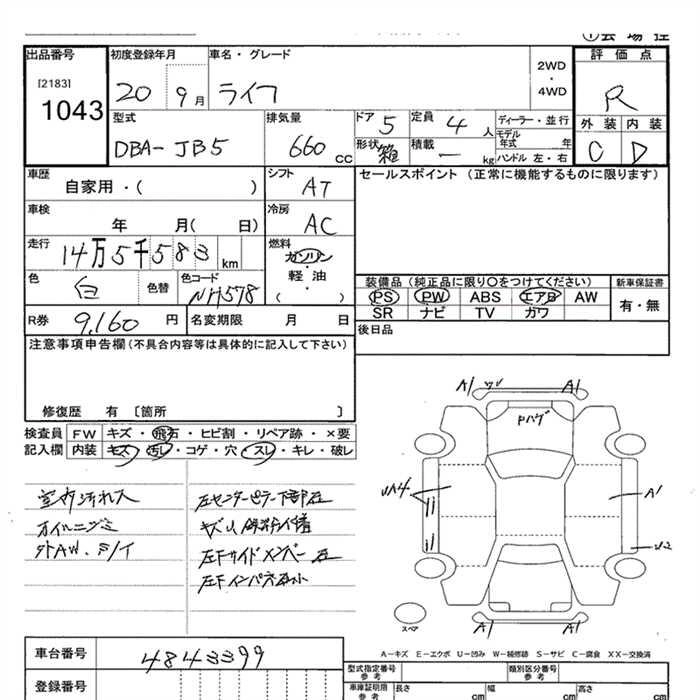 出品番号
[2183]
1043
初度登録年月
20 9月
車名・グレード
ライフ
2WD
・
4WD
評価点
R
外装 内装
C D
型式
DBA-JB5
排気量
660 CC
ドア 5
形状 箱
定員 4 人
積載 ー kg
ディーラー・並行
モデル年式 年
ハンドル 左・右
車歴
自家用・( )
車検
年 月( 日)
走行
14万5千583 km
色 白
色替
色コード
NH578
シフト
AT
冷房
AC
燃料
ガソリン
軽油
・
( )
セールスポイント (正常に機能するものに限ります)
装備品 (純正品に限り〇をつけてください)
PS PW ABS エアB AW
SR ナビ TV ガワ
新車保証書
有・無
R券 9,160 円
名変期限 月 日
後日品
注意事項申告欄(不具合内容等は具体的に記入して下さい)
修復歴 有 〔箇所 〕
検査員 FW キズ・飛石・ヒビ割・リペア跡・×要
記入欄 内装 キズ・汚レ・コゲ・穴・スレ・キレ・破レ
室内汚れ大
オイルニジミ
左センターピラー下部
左Fサイドメンバー
左Fインパネ
A1 A1
Pハゲ
UA4
A1
A1 A1
スペア
A－キズ E－エクボ U－凹み W－補修跡 S－サビ C－腐食 XX－交換済
車台番号 4843399
登録番号
型式指定番号
参考
類別区分番号
参考
車庫証明用
参考
長さ cm
幅 cm
高さ cm